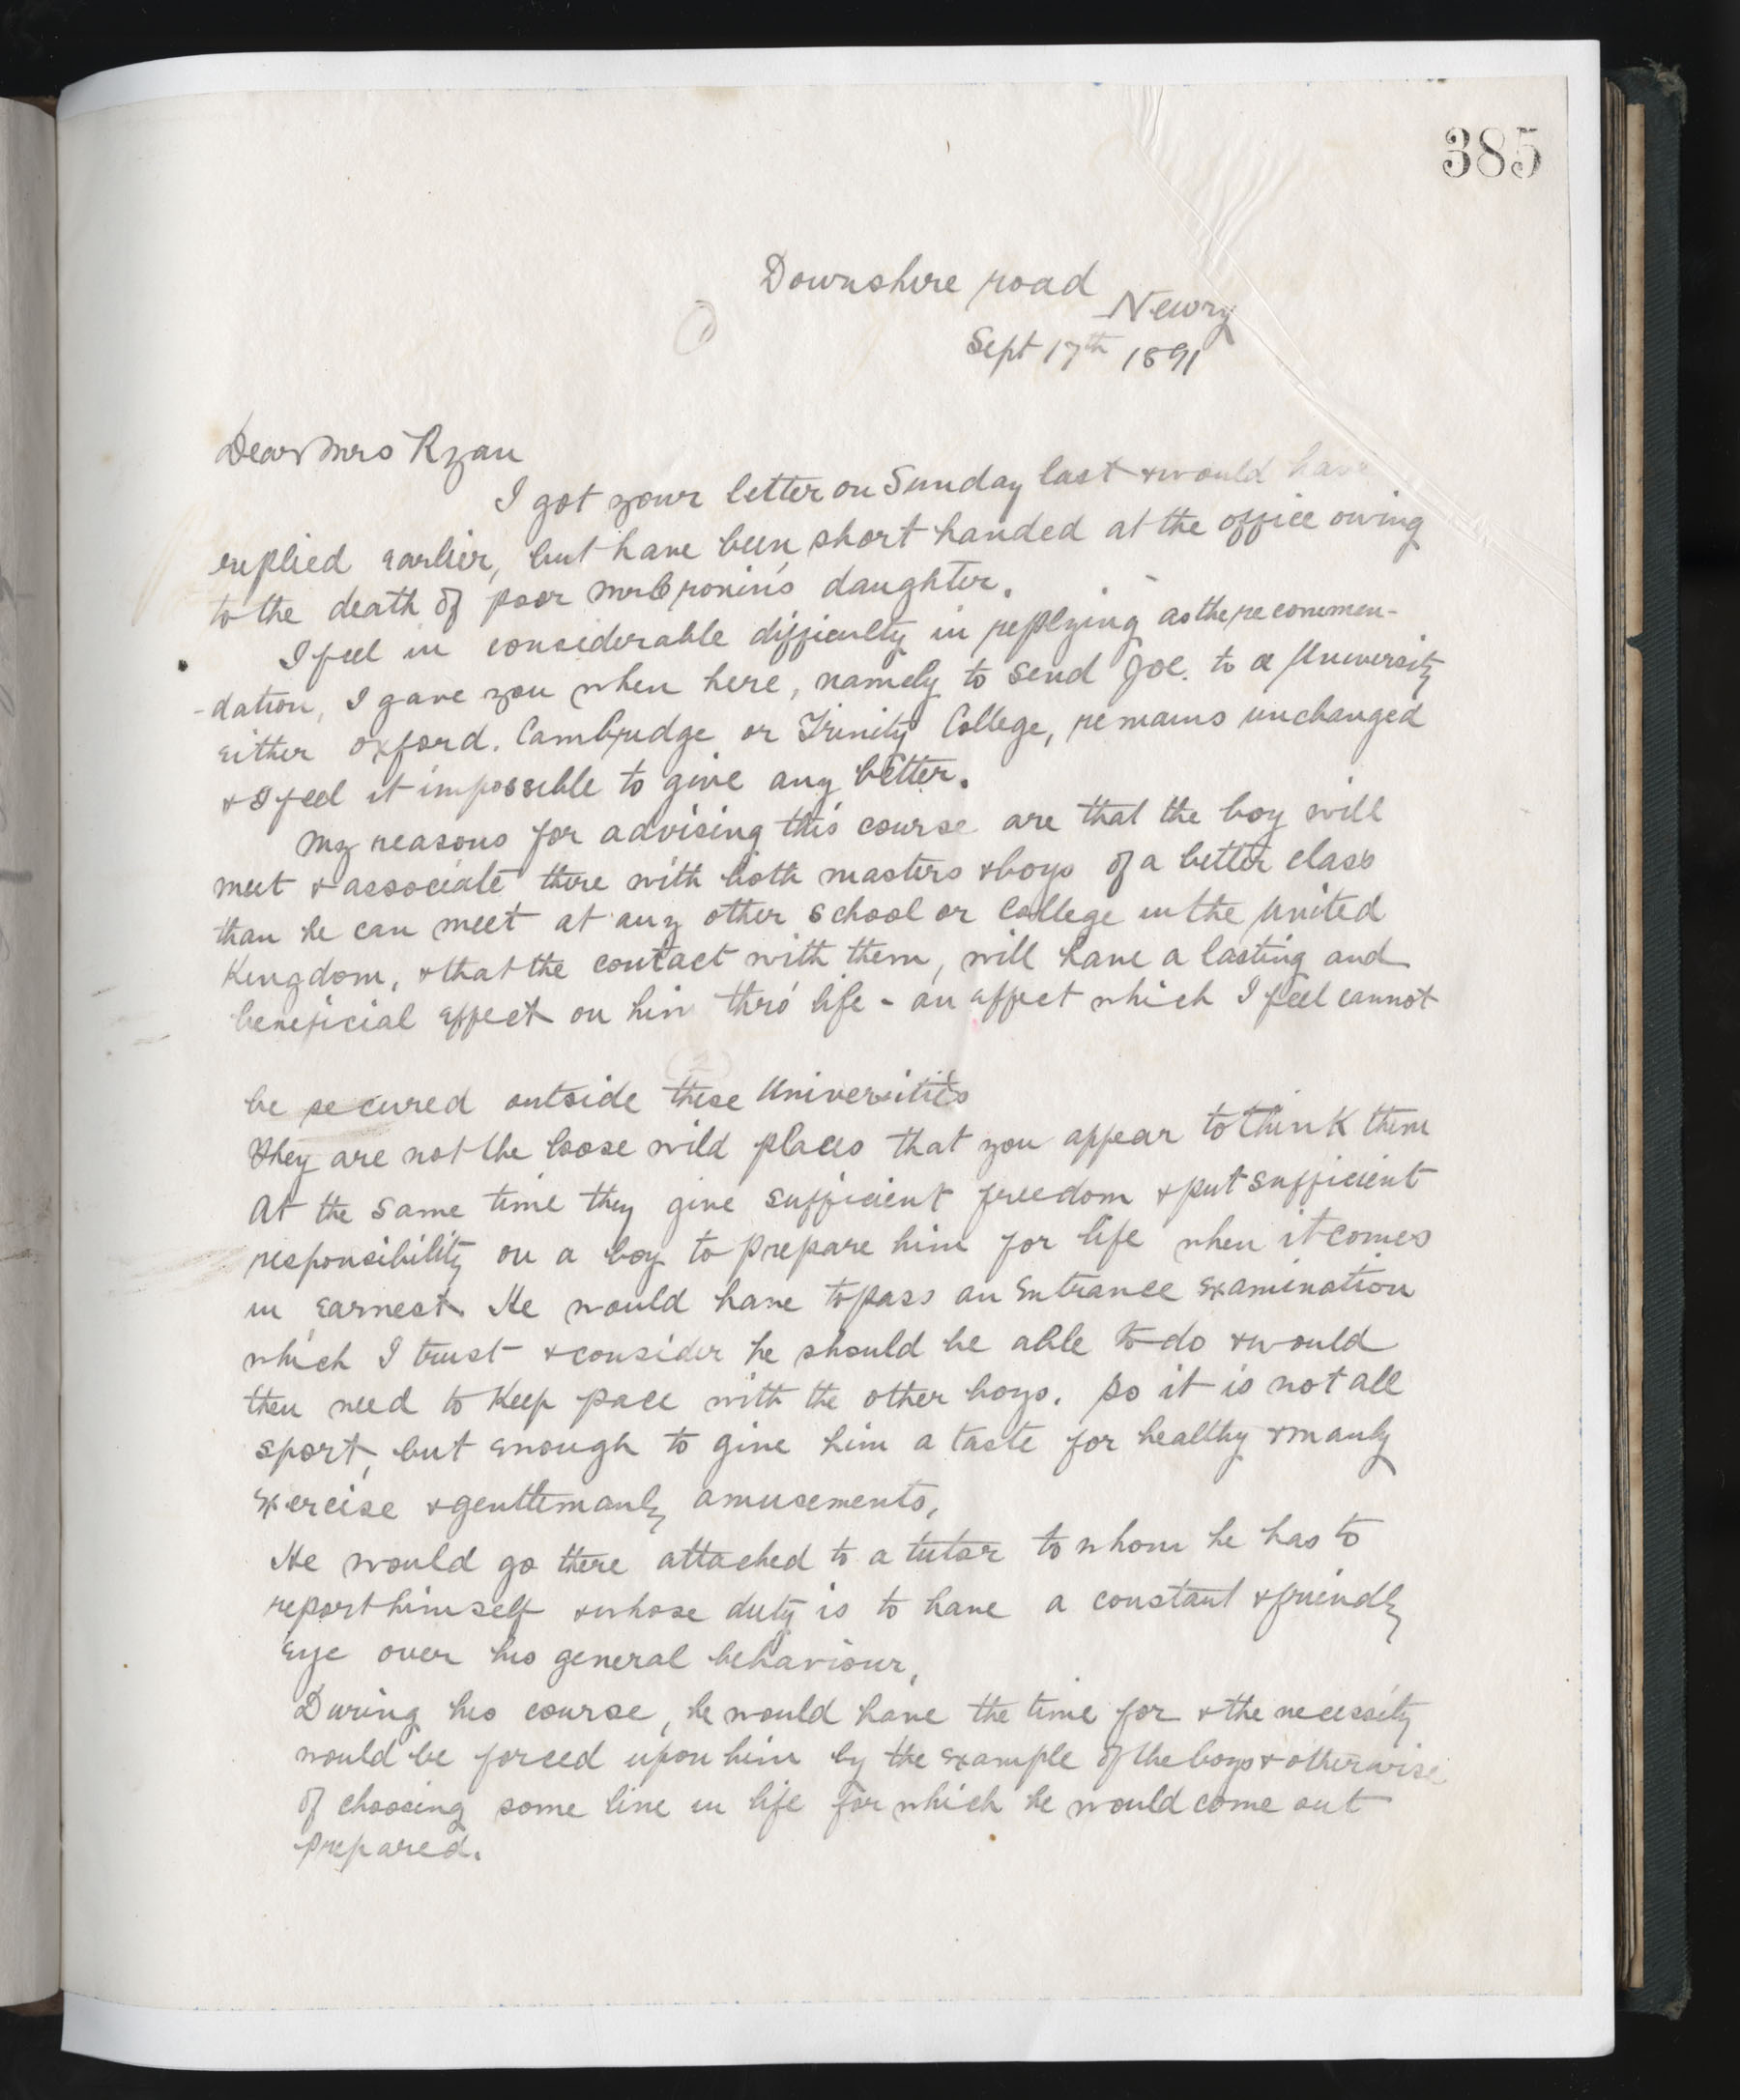 385
Downshire road
Newry
Sept 17th 1891
Dear Mrs Ryan
I got your letter on Sunday last & would have
replied earlier, but have been short handed at the office owing
to the death of poor Mr Cronin's daughter.
I feel in considerable difficulty in replying as the recommen-
-dation, I gave you when here, namely to send Joe. to a University
either Oxford. Cambridge or Trinity College, remains unchanged
& I feel it impossible to give any better.
My reasons for advising this course are that the boy will
meet & associate there with both masters & boys of a better class
than he can meet at any other school or College in the United
Kingdom, & that the contact with them, will have a lasting and
beneficial effect on him thro' life - an affect which I feel cannot
(2)
be secured outside these Universities
They are not the loose wild places that you appear to think them
At the same time they give sufficient freedom & put sufficient
responsibility on a boy to prepare him for life when it comes
in earnest. He would have to pass an Entrance Examination
which I trust & consider he should be able to do & would
then need to keep pace with the other boys. so it is not all
sport, but enough to give him a taste for healthy & manly
exercise & gentlemanly amusements,
He would go there attached to a tutor to whom he has to
report himself & whose duty is to have a constant & friendly
eye over his general behaviour,
During his course, he would have the time for & the necessity
would be forced upon him by the example of the boys & otherwise
of choosing some line in life for which he would come out
prepared.